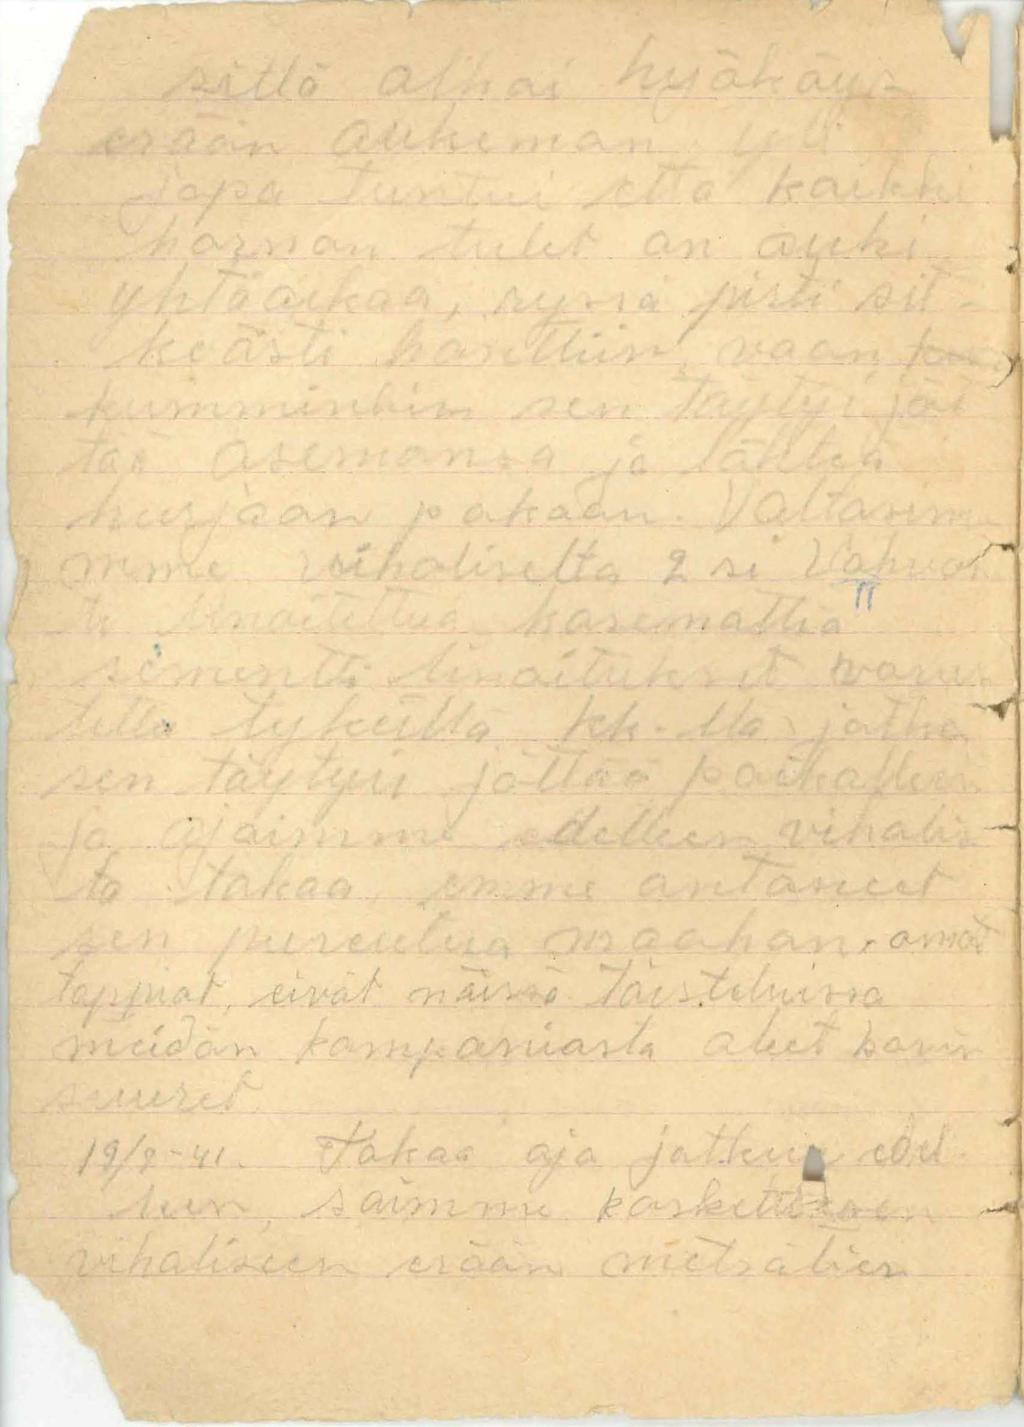 sillä alkoi hyökäys
erään aukeman yli
jopa tuntui että kaikki
hornan tulet on auki
yhtäaikaa, ryssä pisti sit-
keästi hanttiin, vaan
kumminkin sen täytyi jät
tää asemansa ja lähteä
hurjaan pakaan. Valtasim
mme viholiselta 2 si Vahvas
ti linoitettua kasemattia
sementti linoitukset varus
tettu tykeillä kk. lla jotka
sen täytyi jättää paikalleen
ja ajoimme edelleen vihalis
ta takaa, emme antaneet
sen pureutua maahan. omat
tappiot, eivät näissä taisteluissa
meidän komppaniasta oleet kovin
suuret
19/8-41. Takaa ajo jatkuu edel
leen, saimme kosketuksen
viholiseen erään metsätien